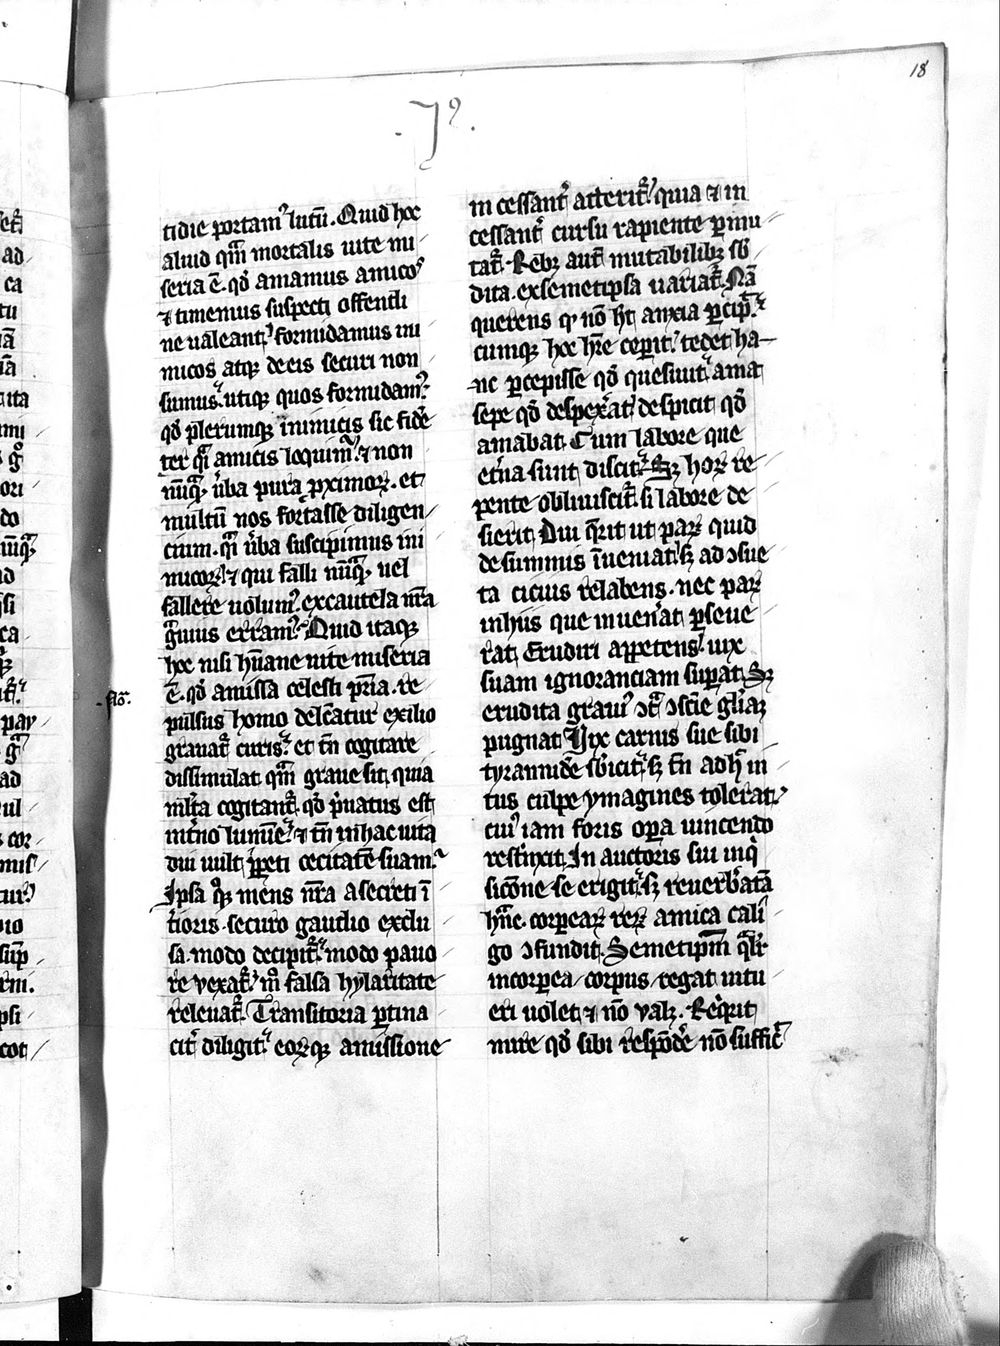 18
.7⁹.
tidie portam⁹ lutū. Quid hoc
aliud qm̄ mortalis uite mi
seria ē. qd̄ amamus amicos
⁊ timemus suspecti offendi
ne ualeant, formidamus ini
micos atq; de eis securi non
sumus. utiq; quos formidam⁹.
qd̄ plerumq; inimicis sic fidē
ter q̄i amicis loquim̄. ⁊ non
nūq̄ u̇ba pura p̱ximoꝝ. et
multū nos fortasse diligen
cium. q̄i u̇ba suscipimus ini
micoꝝ. ⁊ qui falli nūq̄ uel
fallere uolum⁹. ex cautela nr̄a
g̊uius erram⁹. Quid itaq;
hoc nisi hūane uite miseria
ē. qd̄ amissa celesti pr̄ia. re
pulsus homo delc̄atur exilio
grauat̄ curis. et tn̄ cogitare
dissimulat qm̄ graue sit, quia
ml̄ta cogitant̄. qd̄ p̓uatus est
int̄no lumīe. ⁊ tn̄ in hac uita
diu uult ꝑpeti cecitatē suam.
Ipsa q; mens nr̄a a secreti ī
t̄ioris securo gaudio exclu
sa. modo decipit̄. modo pauo
re vexat̄. mō falsa hylaritate
releuat̄. Transitoria ꝑtina
cit̄ diligit. eoꝝq; amissione
flō.
in cessant̄ atterit̄, quia ⁊ in
cessant̄ cursu rapiente ꝑmu
tat̄. Reb; aut̄ mutabilib; sb̄
dita. ex semetipsa uariat̄. Nā
querens qd̄ nō ht̄ anxia ꝑcip̄.
cumq; hoc hr̄e ceperit, tedet ha
nc ꝑcepisse qd̄ quesiuit. ama
sepe qd̄ despex̄at, despicit qd̄
amabat. Cum labore que
et̄na sunt discit. Sꝫ hoꝝ re
pente obliuiscit̄. si labore de
sierit. Diu q̄rit ut paꝝ quid
de summis īueniat. sꝫ ad ↄsue
ta cicius relabens. nec paꝝ
in hiis que inuen̄at ꝑseue
rat. Erudiri appetens. uix
suam ignoranciam sup̄at. Sꝫ
erudita graui⁹ ↄt̄ ↄscīe gl̄iaꝫ
pugnat. Uix carnis sue sibi
tyrannidē sb̄icit. sꝫ tn̄ adh̄ in
tus culpe ymagines tolerat.
cui⁹ iam foris oꝑa uincendo
restinxit. In auctoris sui inq̓
sicōne se erigit. sꝫ reuerb̄atā
hn̄c. corpeaꝝ reꝝ amica cali
go ↄfundit. Semetipm̄ q̄lit̄
incorꝑea corpus regat intu
eri uolet, ⁊ nō valꝫ. Reqr̓it
mire qd̄ sibi respōde nō suffic̄